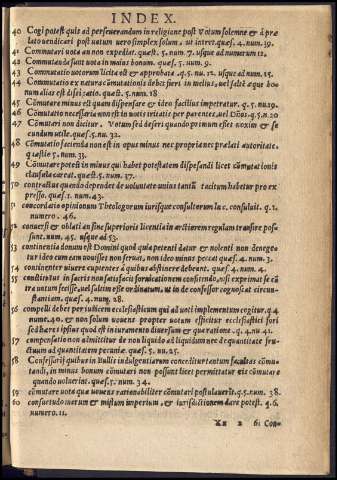 INDEX.
40 Cogi potest quis ad perseverandum in religione post Votum solemne & à præ
lato vendicari post votum vero simplex solum, ut intret. quæs. 4. num. 39.
41 Commutari vota an non expediat. quæst. 5. num. 7. usque ad numerum 12.
42 Commutanda sunt vota in maius bonum. quæs. 5. num. 9.
43 Commutatio votorum licita est & approbata. q. 5. nu. 12. usque ad num. 15.
44 Commutatio ex natura cõmutationis debet fieri in melius, vel saltẽ æque bo
num alias est disẽsatio. quæst. 5. num. 18
45 Cõmutare minus est quam dispensare & ideo facilius impetratur. q. 5. nu. 19.
46 Cõmutatio necessaria non est in votis irritatis per parentes, vel Dños. q. 5. n. 20
47 Cõmutari non dicitur, Votum sed deseri quando primum esset noxium & se
cundum utile. quæs. 5. nu. 32.
48 Cõmutatio facienda non est in opus minus nec proprianec prælati autoritate.
quæstio 5. num. 33.
49 Cõmutare potest in minus qui habet potestatem dispensandi licet cõmutationis
clausula careat. quæst. 5. num. 37.
50 contractus quando dependet de voluntate unius tantũ tacitum habetur pro ex
presso. quæs. 1. num. 43.
51 concordatio opinionum Theologorum iurisque consultorum in c. consuluit. q. 1.
numero. 46.
52 conversi & oblati an sine superioris licentia in arctiorem regulam transire possunt
sunt. num. 45. usque ad 53.
53 continentia donum est Domini quod quia petenti datur & nolenti non denegatur
tur ideo cum eam novisses non servas, non ideo minus peccat quæs. 4. num. 3.
54 continenter vivere caventes à quibus abstinere debeant. quæs. 4. num. 4.
55 constitutus in sacris non satisfacit fornicationem confitendo, nisi exprimat se cõ
tra votum fecisse, vel saltim esse ordinatum, ut in de confessor cognoscat circum-
stantiam. quæs. 4. num. 28.
56 compelli debet per iudicem ecclesiasticum qui ad voti implementum cogitur. q. 4
num. 40. & non solum vovens propter votum efficitur ecclesiastici fori
sed hæres ipsius quod est in iuramento diversum & qua ratione. q. 4. nu. 41.
57 compensatio non admittitur de non liquido ad liquidum nec de quantitate fru-
ctuum ad quantitatem pecuniæ. quæs. 5. nu. 25.
58 Confessarij quibus in Bullis indulgentiarum conceditur tentum facultas cõmu-
tandi, in minus bonum cõmutari non possunt licet permittatur eis cõmutare
quando voluerint. quæs. 5. num. 34.
59 cõmutare vota quæ vovens rationabiliter cõmutari postulaverit. q. 5. num. 38.
60 consuetudo merum & mistum imperium, & iurisdictionem dare potest. q. 6.
numero. 11.
61 Con-